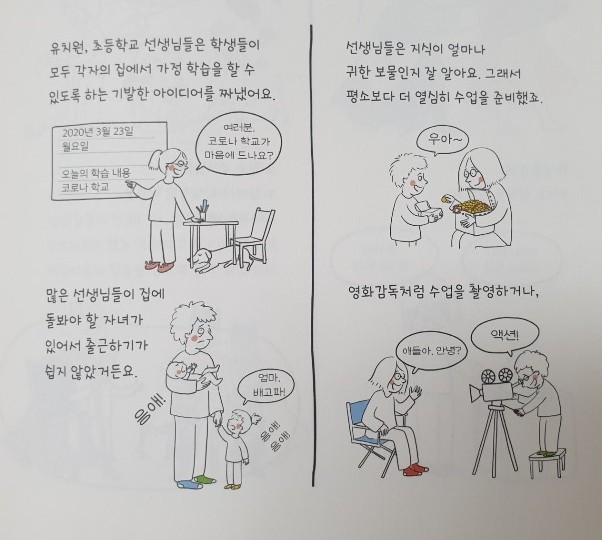 유치원, 초등학교 선생님들은 학생들이
모두 각자의 집에서 가정 학습을 할 수
있도록 하는 기발한 아이디어를 짜냈어요.
2020년 3월 23일
월요일
오늘의 학습 내용
코로나 학교
여러분,
코로나 학교가
마음에 드나요?
많은 선생님들이 집에
돌봐야 할 자녀가
있어서 출근하기가
쉽지 않았거든요.
응애!
엄마,
배고파!
응애!
응애!
선생님들은 지식이 얼마나
귀한 보물인지 잘 알아요. 그래서
평소보다 더 열심히 수업을 준비했죠.
우아~
영화감독처럼 수업을 촬영하거나,
얘들아, 안녕?
액션!